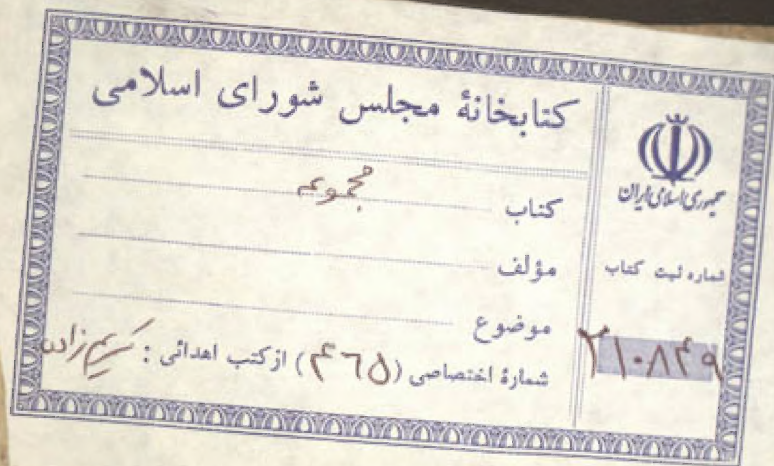 کتابخانهٔ مجلس شورای اسلامی
کتاب مجموعه
مؤلف
موضوع
شمارهٔ اختصاصی (۴۶۵) از کتب اهدائی : کریم‌زاده
جمهوری اسلامی ایران
شماره ثبت کتاب
۲۱۰۸۴۹